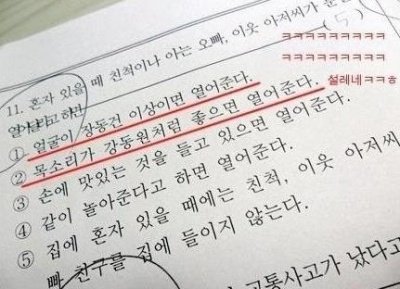 11. 혼자 있을 때 친척이나 아는 오빠, 이웃 아저씨가 문
열어달라고 하면 (5)
① 얼굴이 장동건 이상이면 열어준다.
② 목소리가 강동원처럼 좋으면 열어준다.
③ 손에 맛있는 것을 들고 있으면 열어준다.
④ 같이 놀아준다고 하면 열어준다.
⑤ 집에 혼자 있을 때에는 친척, 이웃 아저씨
빠 친구를 집에 들이지 않는다.
교통사고가 났다고
ㅋㅋㅋㅋㅋㅋㅋㅋㅋ
ㅋㅋㅋㅋㅋㅋㅋㅋㅋ
설레네ㅋㅋㅎ